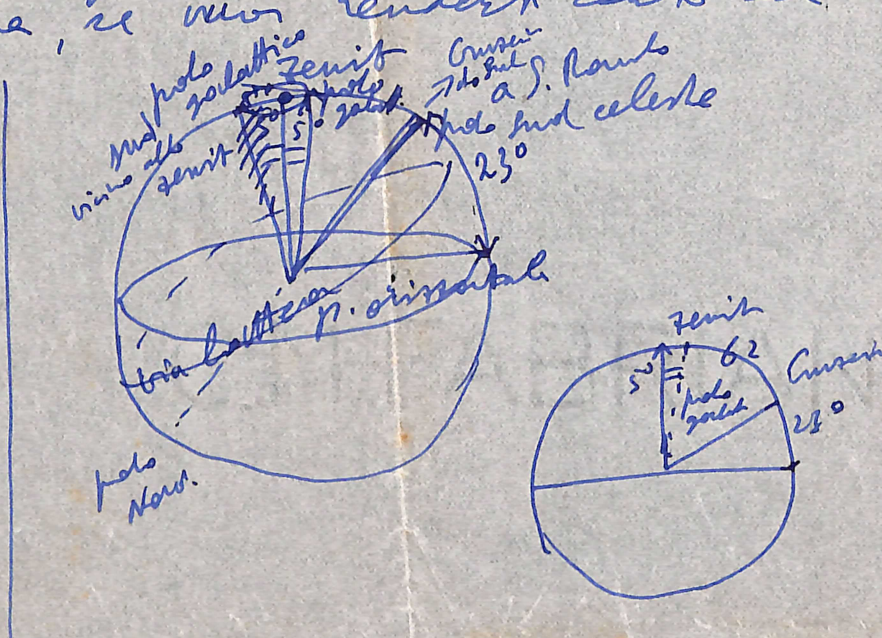 , se vuoi renderti conto
polo
galattico
sud
vicino allo
zenit
Zenit
polo
galatt.
5° 5°
Cruzeiro
do Sul
a S. Paulo
polo sud celeste
23°
via lattea
p. orizzontale
polo
Nord.
zenit
5°
62
polo
galatt.
Cruzeiro
23°